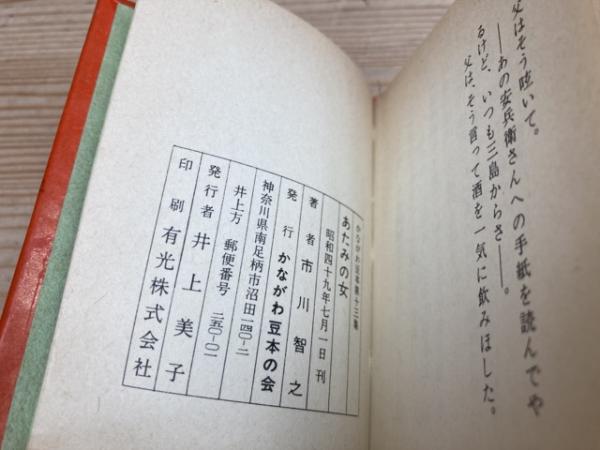 父はそう呟いて。
――あの安兵衛さんへの手紙を読んでや
るけど、いつも三島からさ――。
父は、そう言って酒を一気に飲みほした。
かながわ豆本第十三集
あたみの女
昭和四十九年七月一日刊
著者 市川智之
発行 かながわ豆本の会
神奈川県南足柄市沼田一四〇-二
井上方 郵便番号 二五〇-〇一
発行者 井上美子
印刷 有光株式会社